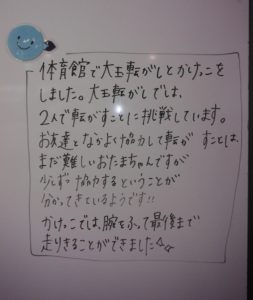 体育館で大玉転がしとかけっこを
しました。大玉転がしでは、
2人で転がすことに挑戦しています。
お友達となかよく協力して転がすことは、
まだ難しいおたまちゃんですが
少しずつ協力するということが
分かってきているようです!!
かけっこでは、腕をふって最後まで
走りきることができました☆☆